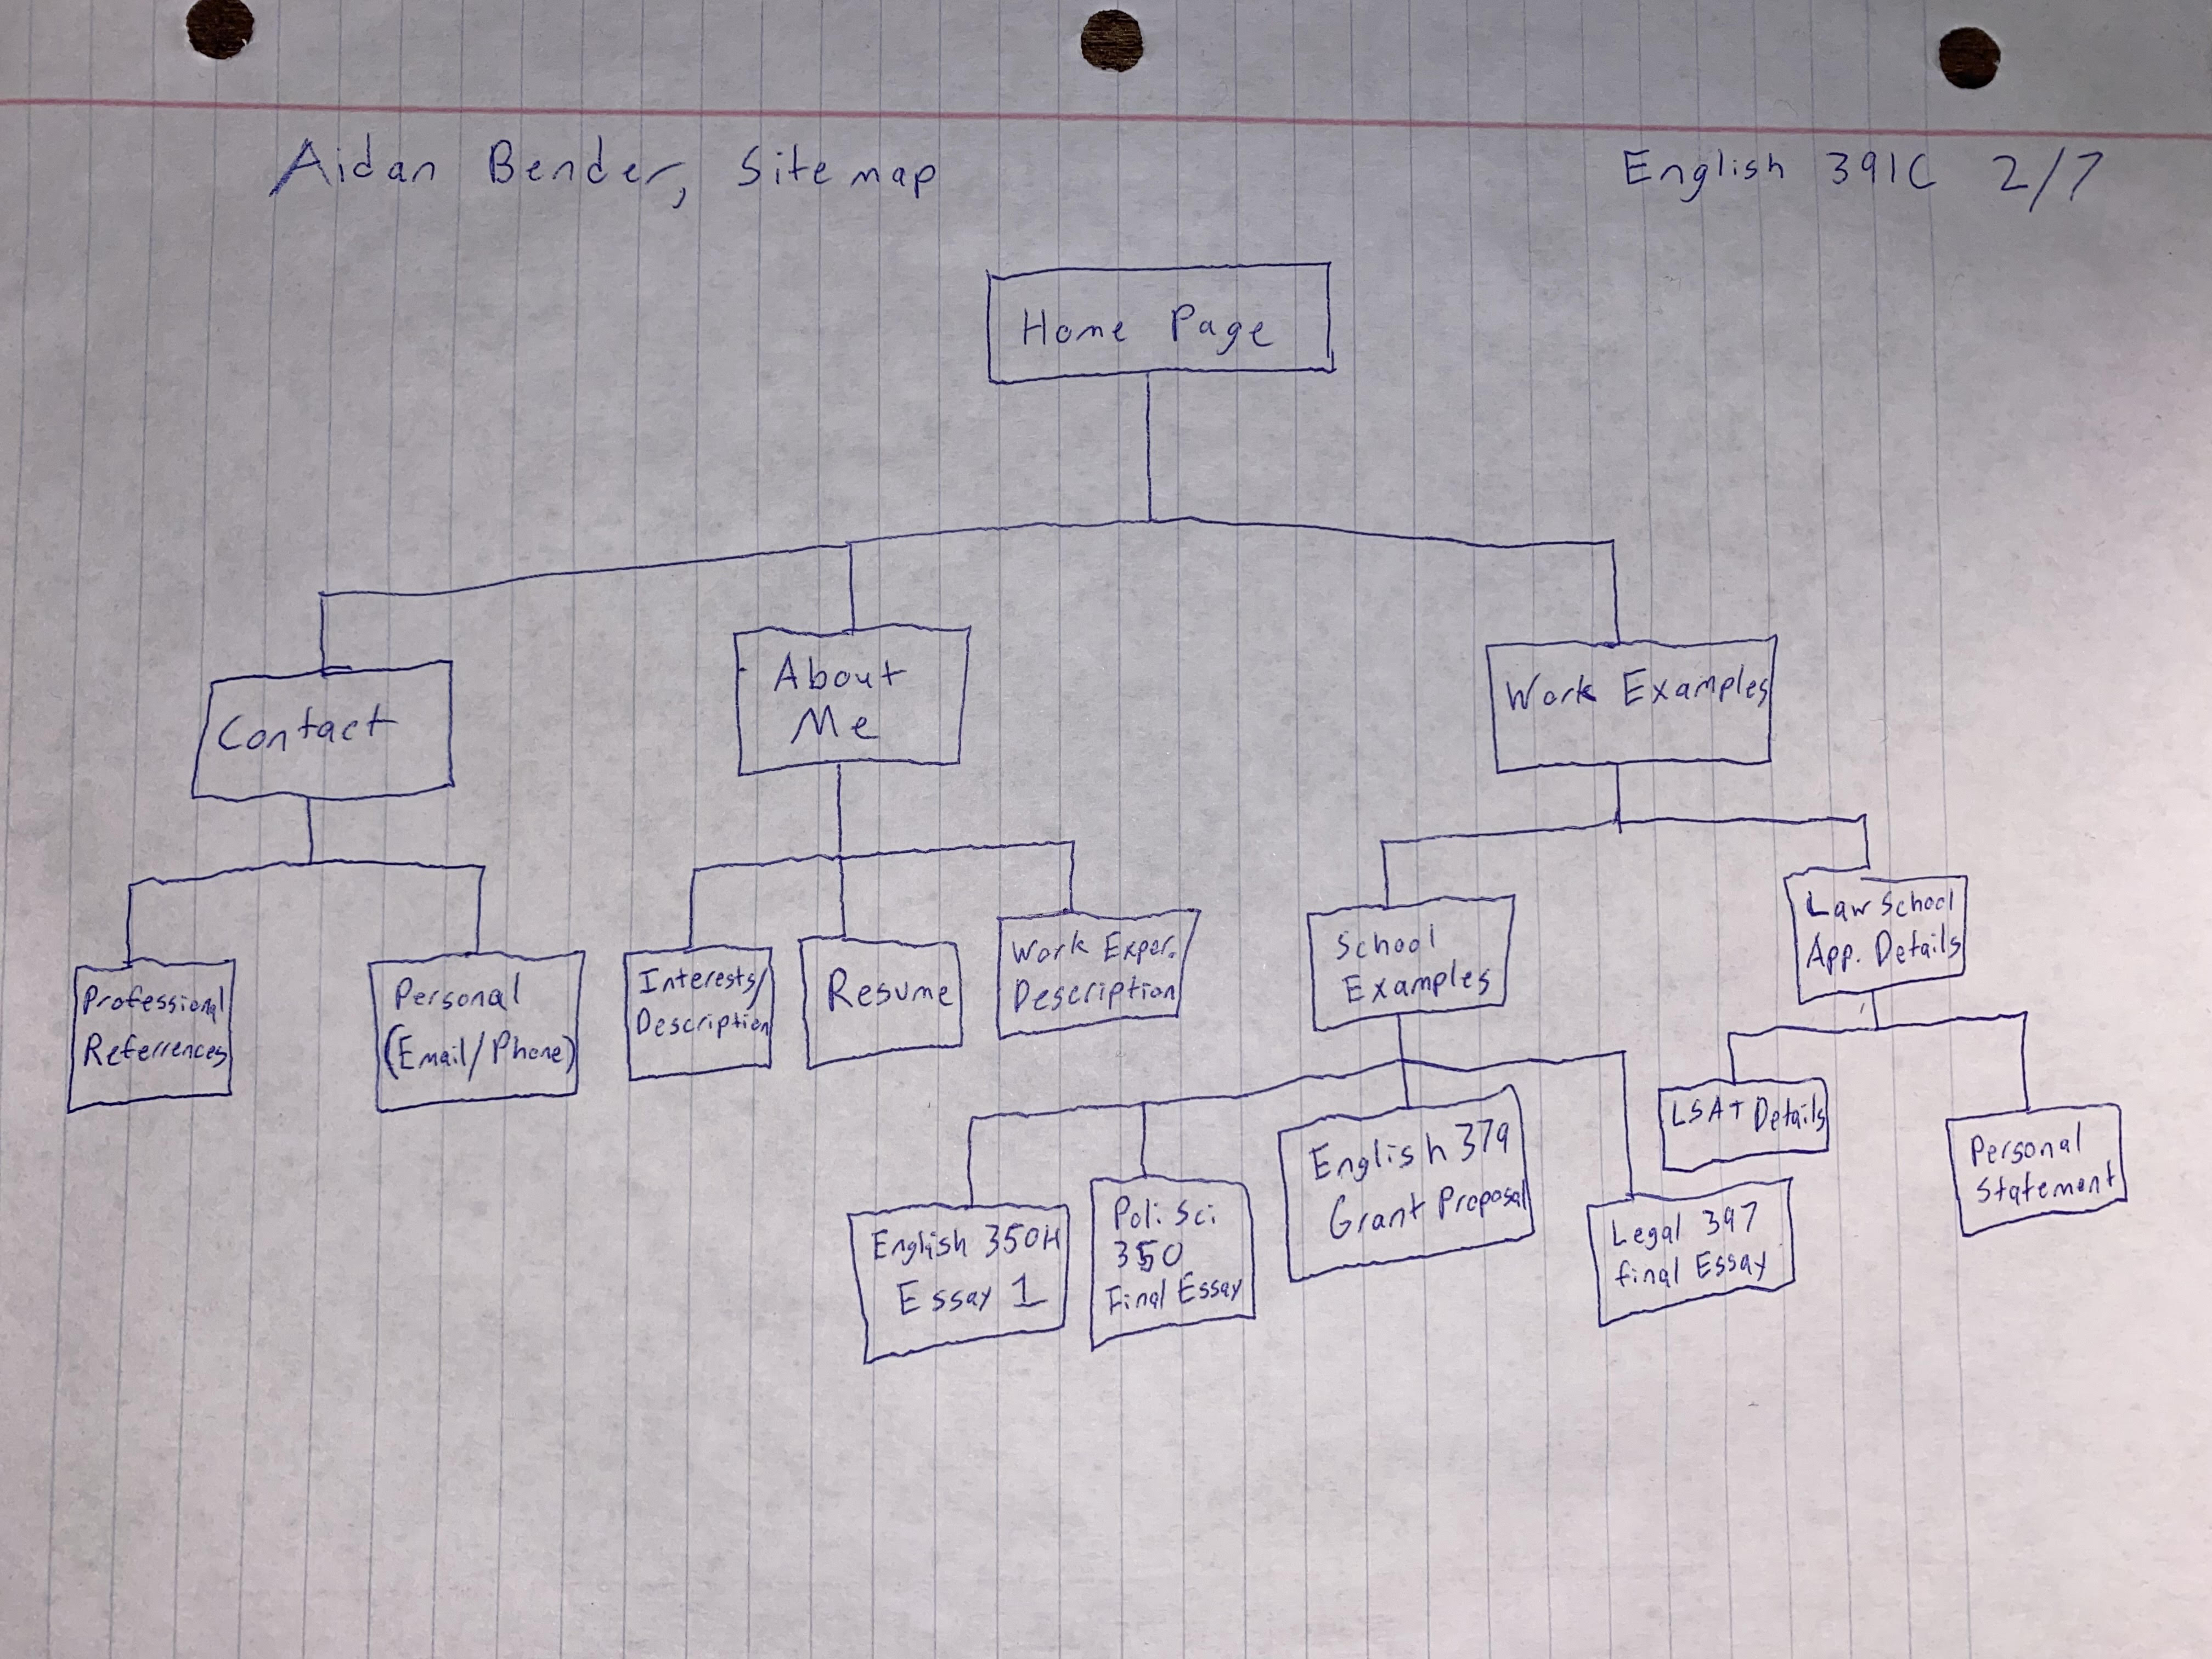 Aidan Bender, Sitemap
English 391C 2/7
Home Page
Contact
About
Me
Work Examples
Professional
Referrences
Personal
(Email/Phone)
Interests/
Description
Resume
Work Exper.
Description
School
Examples
Law School
App. Details
English 350H
Essay 1
Poli. Sci.
350
Final Essay
English 379
Grant Proposal
Legal 397
final Essay
LSAT Details
Personal
Statement